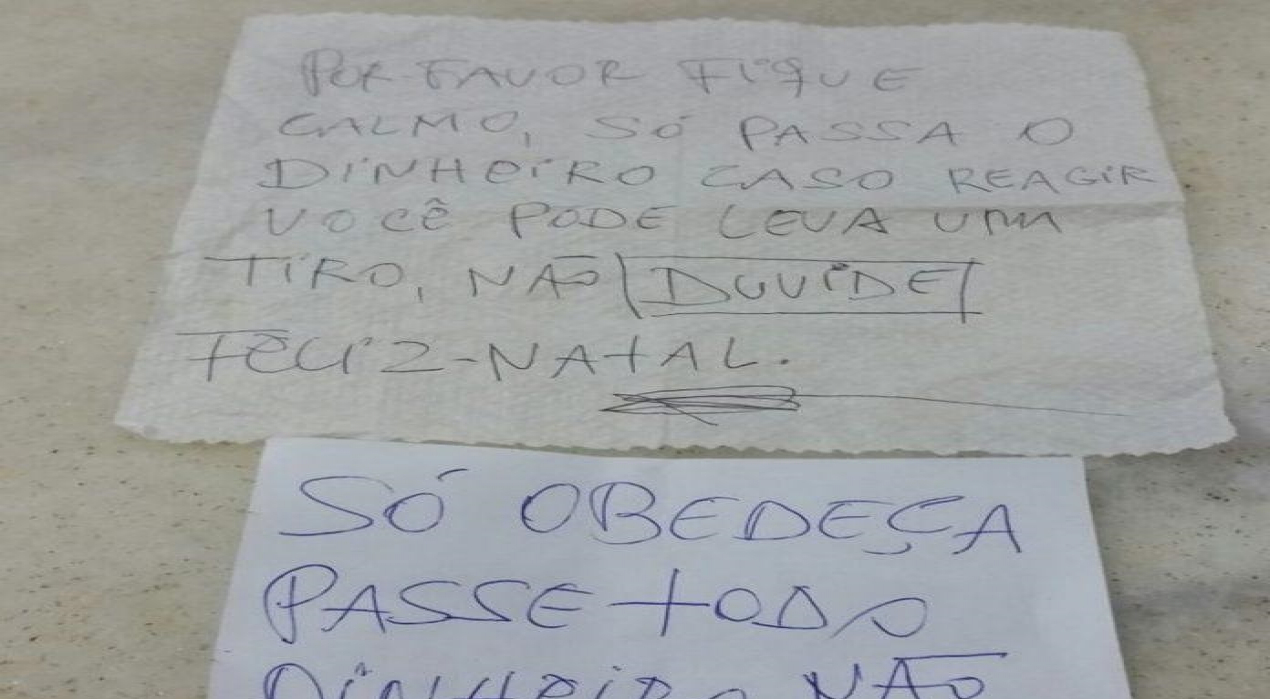 POR FAVOR FIQUE
CALMO, SÓ PASSA O
DINHEIRO CASO REAGIR
VOCÊ PODE LEVA UM
TIRO, NÃO DUVIDE
FELIZ-NATAL.
SÓ OBEDEÇA
PASSE TODO
DINHEIRO NÃO